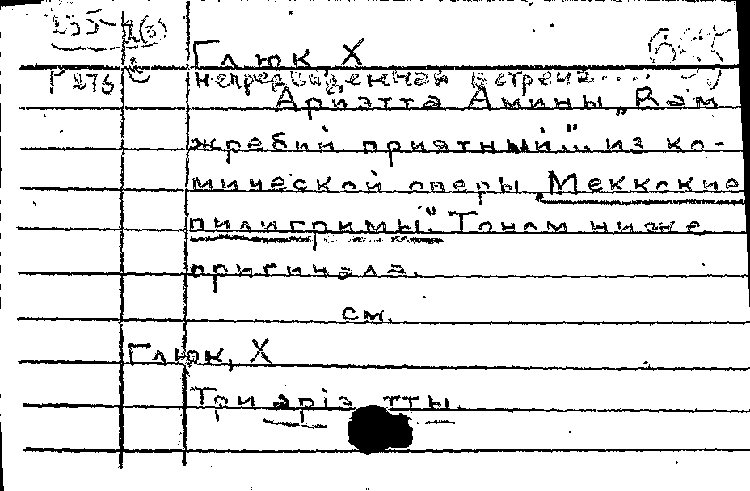 255-2(3)
Глюк Х
Р 276 непредвиденная встреча....
Ариэтта Амины „Вам
жребий приятный..." из ко-
мической оперы „Меккские
пилигримы." Тоном ниже
оригинала.
см.
Глюк, Х
Три аріэтты